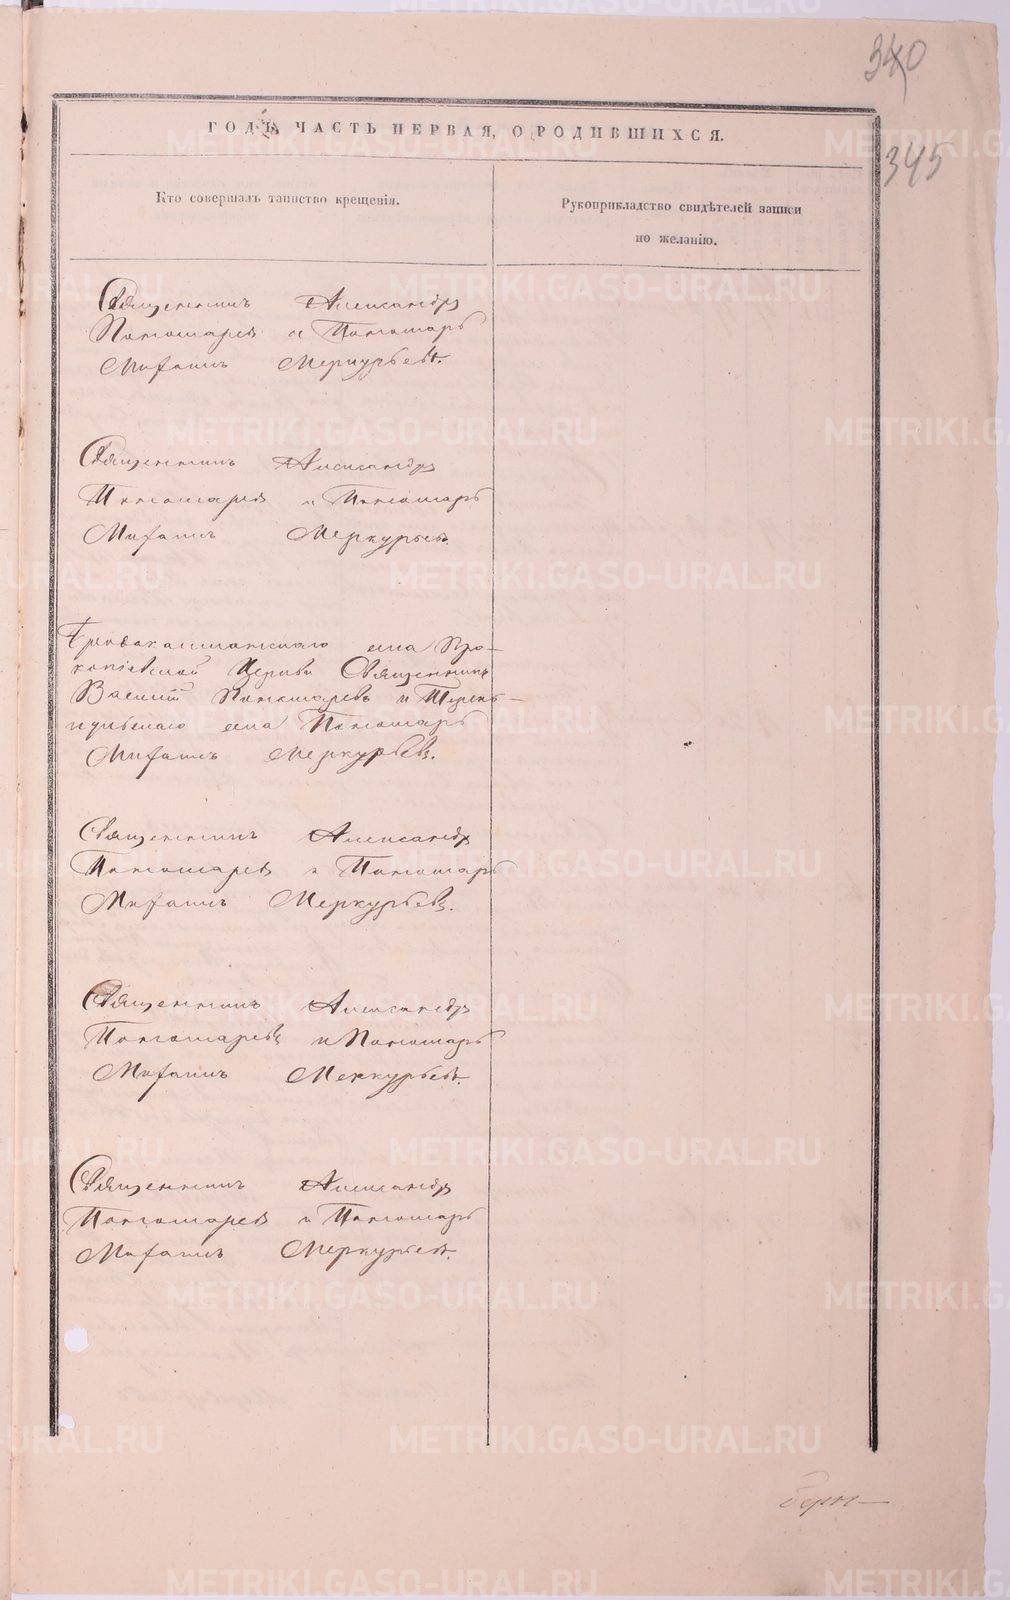 340
345
ГОДЪ ЧАСТЬ ПЕРВАЯ, О РОДИВШИХСЯ.
Кто совершалъ таинство крещенія.
Рукоприкладство свидѣтелей записи
по желанію.
Священникъ Александръ
Пономаревъ и Пономарь
Михаилъ Меркурьевъ.
Священникъ Александръ
Пономаревъ и Пономарь
Михаилъ Меркурьевъ.
села Про-
копіевской Церкви Священникъ
Василій Пономаревъ и
села Пономарь
Михаилъ Меркурьевъ.
Священникъ Александръ
Пономаревъ и Пономарь
Михаилъ Меркурьевъ.
Священникъ Александръ
Пономаревъ и Пономарь
Михаилъ Меркурьевъ.
Священникъ Александръ
Пономаревъ и Пономарь
Михаилъ Меркурьевъ.
METRIKI.GASO-URAL.RU